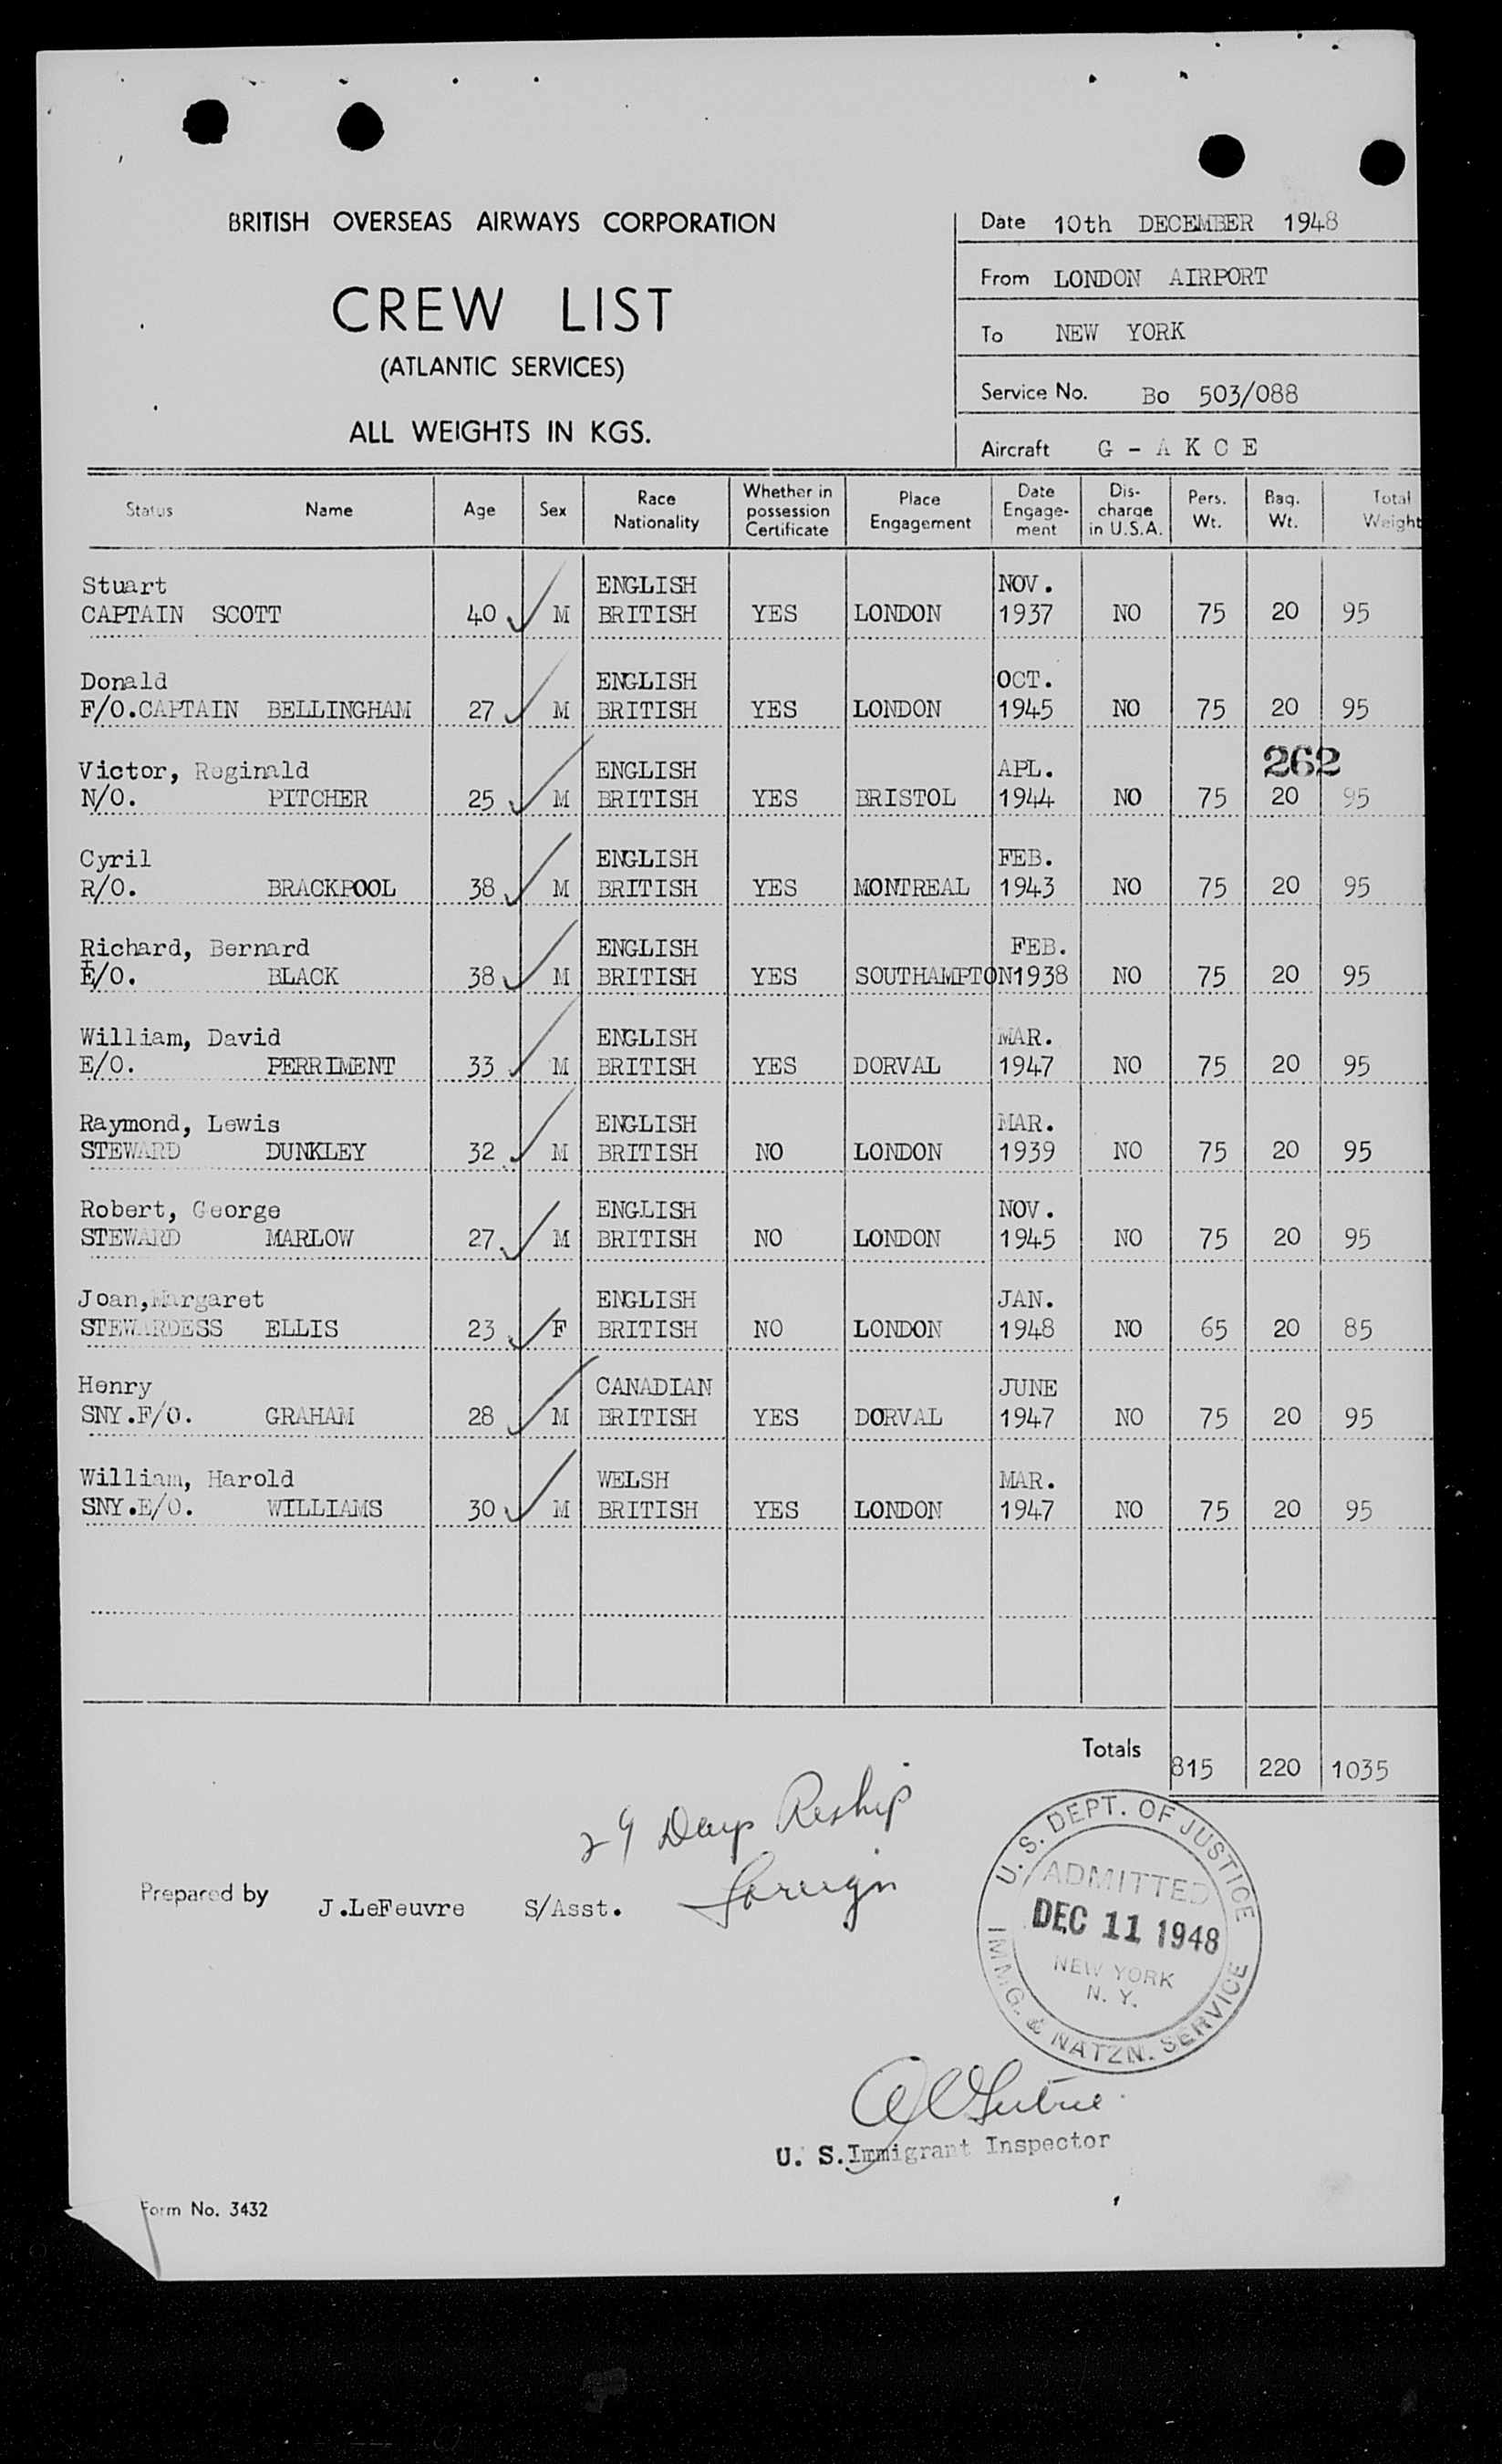 BRITISH OVERSEAS AIRWAYS CORPORATION
CREW LIST
(ATLANTIC SERVICES)
ALL WEIGHTS IN KGS.
Date 10th DECEMBER 1948
From LONDON AIRPORT
To NEW YORK
Service No. Bo 503/088
Aircraft G - A K C E
Status Name Age Sex Race Nationality Whether in possession Certificate Place Engagement Date Engage-ment Dis-charge in U.S.A. Pers. Wt. Bag. Wt. Total Weight
Stuart ENGLISH NOV.
CAPTAIN SCOTT 40 M BRITISH YES LONDON 1937 NO 75 20 95
Donald ENGLISH OCT.
F/O.CAPTAIN BELLINGHAM 27 M BRITISH YES LONDON 1945 NO 75 20 95
262
Victor, Reginald ENGLISH APL.
N/O. PITCHER 25 M BRITISH YES BRISTOL 1944 NO 75 20 95
Cyril ENGLISH FEB.
R/O. BRACKPOOL 38 M BRITISH YES MONTREAL 1943 NO 75 20 95
Richard, Bernard ENGLISH FEB.
E/O. BLACK 38 M BRITISH YES SOUTHAMPTON 1938 NO 75 20 95
William, David ENGLISH MAR.
E/O. PERRIMENT 33 M BRITISH YES DORVAL 1947 NO 75 20 95
Raymond, Lewis ENGLISH MAR.
STEWARD DUNKLEY 32 M BRITISH NO LONDON 1939 NO 75 20 95
Robert, George ENGLISH NOV.
STEWARD MARLOW 27 M BRITISH NO LONDON 1945 NO 75 20 95
Joan,Margaret ENGLISH JAN.
STEWARDESS ELLIS 23 F BRITISH NO LONDON 1948 NO 65 20 85
Henry CANADIAN JUNE
SNY.F/O. GRAHAM 28 M BRITISH YES DORVAL 1947 NO 75 20 95
William, Harold WELSH MAR.
SNY.E/O. WILLIAMS 30 M BRITISH YES LONDON 1947 NO 75 20 95
Totals 815 220 1035
29 Days Reship
Foreign
Prepared by J.LeFeuvre S/Asst.
U. S. DEPT. OF JUSTICE
ADMITTED
DEC 11 1948
NEW YORK
N. Y.
IMMG. & NATZN. SERVICE
U. S. Immigrant Inspector
Form No. 3432